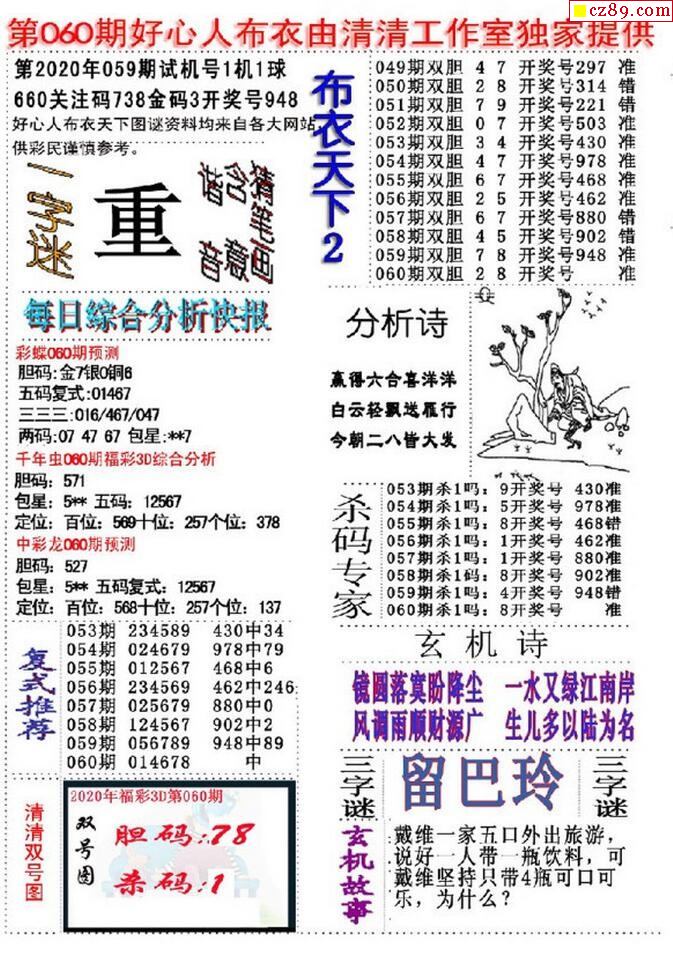 cz89.com
第060期好心人布衣由清清工作室独家提供
第2020年059期试机号1机1球
660关注码738金码3开奖号948
好心人布衣天下图谜资料均来自各大网站,
供彩民谨慎参考。
一字迷
重
猜笔画
含意
谐音
每日综合分析快报
彩蝶060期预测
胆码:金7银0铜6
五码复式:01467
三三三:016/467/047
两码:07 47 67 包星:**7
千年虫060期福彩3D综合分析
胆码：571
包星：5** 五码：12567
定位：百位：569十位：257个位：378
中彩龙060期预测
胆码：527
包星：5** 五码复式：12567
定位：百位：568十位：257个位：137
复式推荐
053期 234589 430中34
054期 024679 978中79
055期 012567 468中6
056期 234569 462中246
057期 025679 880中0
058期 124567 902中2
059期 056789 948中89
060期 014678 中
清清双号图
2020年福彩3D第060期
双号图
胆码:78
杀码:1
布衣天下2
049期双胆 4 7 开奖号297 准
050期双胆 2 8 开奖号314 错
051期双胆 7 9 开奖号221 错
052期双胆 0 7 开奖号503 准
053期双胆 3 4 开奖号430 准
054期双胆 4 7 开奖号978 准
055期双胆 6 7 开奖号468 准
056期双胆 2 5 开奖号462 准
057期双胆 6 7 开奖号880 错
058期双胆 4 5 开奖号902 错
059期双胆 7 8 开奖号948 准
060期双胆 2 8 开奖号 准
分析诗
赢得六合喜洋洋
白云轻飘送雁行
今朝二八皆大发
杀码专家
053期杀1吗：9开奖号 430准
054期杀1吗：5开奖号 978准
055期杀1吗：8开奖号 468错
056期杀1吗：1开奖号 462准
057期杀1吗：1开奖号 880准
058期杀1码：8开奖号 902准
059期杀1吗：4开奖号 948错
060期杀1吗：8开奖号 准
玄机诗
镜圆落寞盼降尘 一水又绿江南岸
风调雨顺财源广 生儿多以陆为名
三字谜
留巴玲
三字谜
玄机故事
戴维一家五口外出旅游，
说好一人带一瓶饮料，可
戴维坚持只带4瓶可口可
乐，为什么？